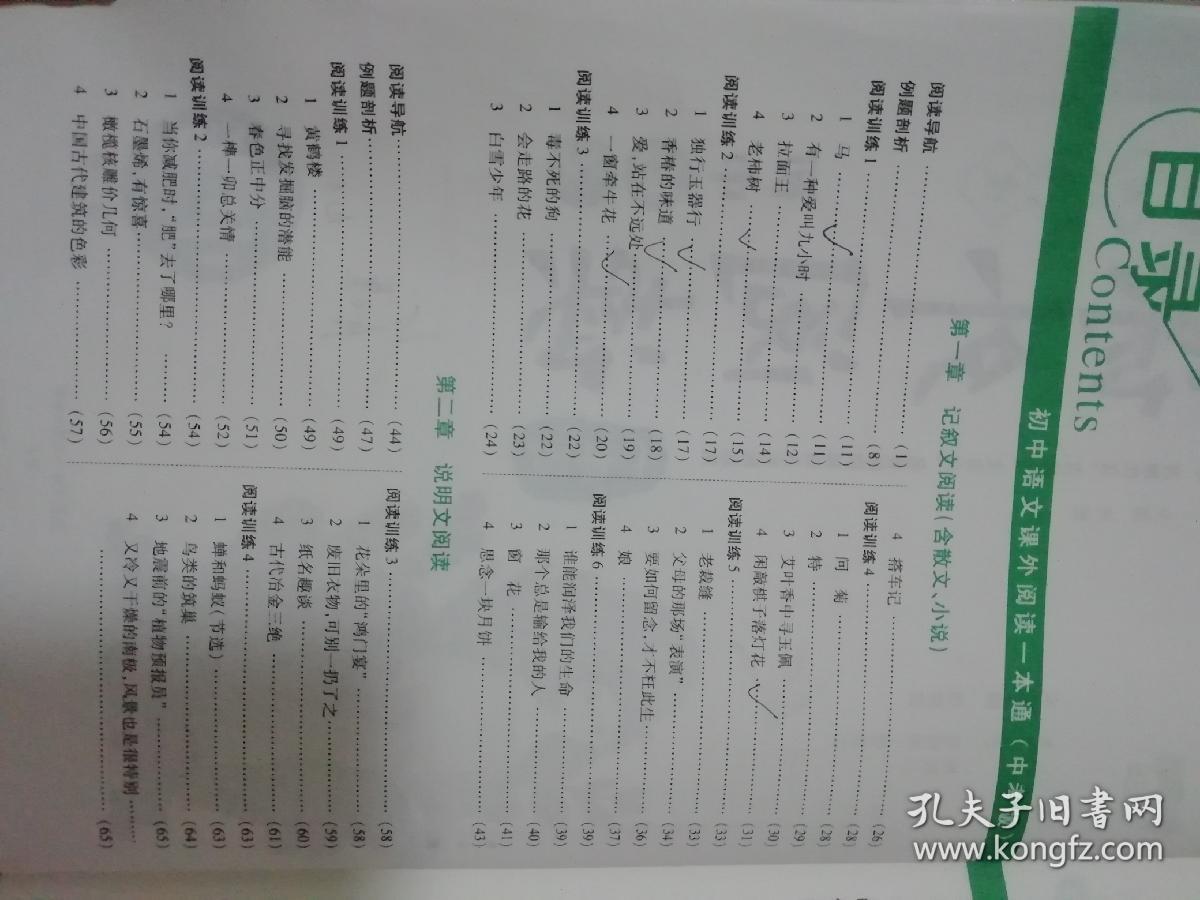 目录
Contents
初中语文课外阅读一本通(中考版)
第一章 记叙文阅读(含散文、小说)
阅读导航 (1)
例题剖析 (8)
阅读训练1 (11)
1 马 (11)
2 有一种爱叫九小时 (11)
3 拉面王 (12)
4 老柿树 (14)
阅读训练2 (15)
1 独行玉器行 (17)
2 香椿的味道 (17)
3 爱,站在不远处 (18)
4 一窗牵牛花 (19)
阅读训练3 (20)
1 毒不死的狗 (22)
2 会走路的花 (22)
3 白雪少年 (23)
(24)
4 搭车记 (26)
阅读训练4 (28)
1 问菊 (28)
2 特 (29)
3 艾叶香中寻玉佩 (30)
4 闲敲棋子落灯花 (31)
阅读训练5 (33)
1 老裁缝 (33)
2 父母的那场“表演” (34)
3 要如何留念,才不枉此生 (36)
4 娘 (37)
阅读训练6 (39)
1 谁能润泽我们的生命 (39)
2 那个总是输给我的人 (40)
3 窗花 (41)
4 思念一块月饼 (43)
第二章 说明文阅读
阅读导航 (44)
例题剖析 (47)
阅读训练1 (49)
1 黄鹤楼 (49)
2 寻找发掘脑的潜能 (50)
3 春色正中分 (51)
4 一榫一卯总关情 (52)
阅读训练2 (54)
1 当你减肥时,“肥”去了哪里? (54)
2 石墨烯,有惊喜 (55)
3 橄榄核雕价几何 (56)
4 中国古代建筑的色彩 (57)
阅读训练3 (58)
1 花朵里的“鸿门宴” (58)
2 废旧衣物,可别一扔了之 (59)
3 纸名趣谈 (60)
4 古代冶金三绝 (61)
阅读训练4 (63)
1 蝉和蚂蚁(节选) (63)
2 鸟类的筑巢 (64)
3 地震前的“植物预报员” (65)
4 又冷又干燥的南极,风景也是很特别
(65)
孔夫子旧书网
www.kongfz.com